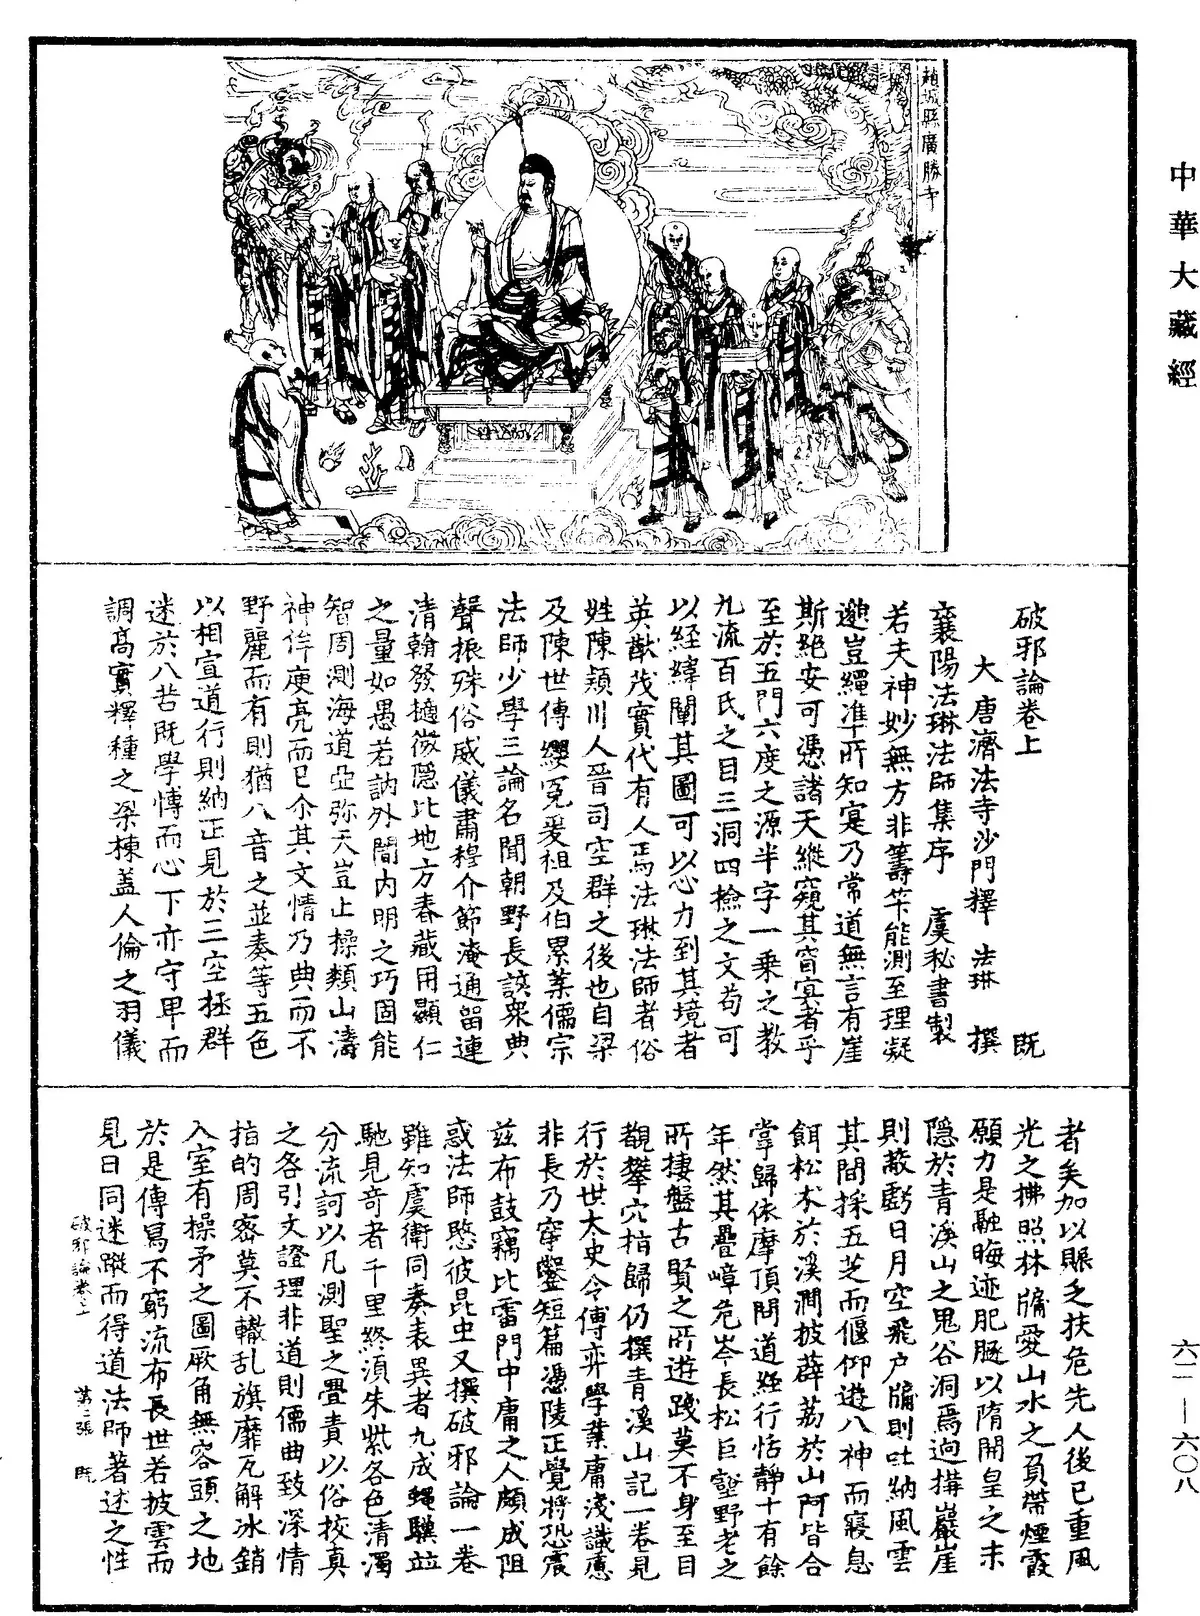 中華大藏經
趙城縣廣勝寺
破邪論卷上　既
大唐濟法寺沙門釋　法琳　撰
襄陽法琳法師集序　虞秘書製
若夫神妙無方非籌筭能測至理凝
邈豈繩準所知寔乃常道無言有崖
斯絕安可憑諸天縱窺其窅冥者乎
至於五門六度之源半字一乗之教
九流百氏之目三洞四檢之文苟可
以經緯闡其圖可以心力到其境者
英猷茂實代有人焉法琳法師者俗
姓陳頴川人晉司空群之後也自梁
及陳世傳纓冕爰祖及伯累業儒宗
法師少學三論名聞朝野長該衆典
聲振殊俗威儀肅穆介節淹通留連
清翰發擿微隱比地方春藏用顯仁
之量如愚若訥外闇內明之巧固能
智周測海道亞弥天豈止操類山濤
神侔庾亮而已尒其文情乃典而不
野麗而有則猶八音之並奏等五色
以相宣道行則納正見於三空拯群
迷於八苦既學愽而心下亦守卑而
調高實釋種之梁棟蓋人倫之羽儀
者矣加以賑乏扶危先人後己重風
光之拂照林牖愛山水之負帶煙霞
願力是融晦迹肥遯以隋開皇之末
隱於青溪山之鬼谷洞焉迥構巖崖
則蔽虧日月空飛戶牖則吐納風雲
其間採五芝而偃仰遊八神而寢息
餌松朮於溪澗披薜荔於山阿皆合
掌歸依摩頂問道經行恬靜十有餘
年然其疊嶂危岑長松巨壑野老之
所棲盤古賢之所遊踐莫不身至目
觀攀穴指歸仍撰青溪山記一卷見
行於世太史令傅弈學業庸淺識慮
非長乃穿鑿短篇憑陵正覺將恐震
茲布鼓竊比雷門中庸之人頗成阻
惑法師愍彼昆虫又撰破邪論一卷
雖知虞衛同奏表異者九成蠅驥竝
馳見奇者千里終須朱紫各色清濁
分流訶以凡測聖之舋責以俗校真
之咎引文證理非道則儒曲致深情
指的周密莫不轍乱旗靡瓦解冰銷
入室有操矛之圖厥角無容頭之地
於是傳寫不窮流布長世若披雲而
見日同迷蹤而得道法師著述之性
破邪論卷上　第二張　既
六二—六〇八